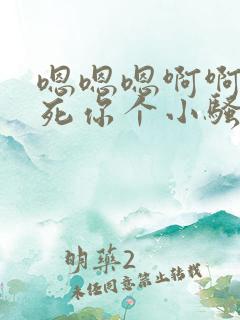 嗯嗯嗯啊啊
死你个小骚
明药2
未经同意禁止转载